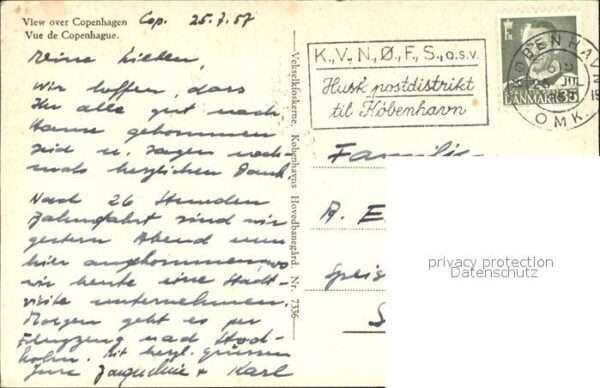 View over Copenhagen
Vue de Copenhague.
Cop. 25.7.57
Meine Lieben,
Wir hoffen, dass
Ihr alle gut nach
Hause gekommen
seid u. sagen noch-
mals herzlichen Dank
Nach 26 Stunden
Bahnfahrt sind wir
gestern Abend nun
hier angekommen, wo
wir heute eine Stadt-
visite unternehmen.
Morgen geht es per
Flugzeug nach Stock-
holm. Mit herzl. Grüssen
Eure Jacqueline + Karl
Vekselkioskerne, Københavns Hovedbanegård. Nr. 7336
K., V., N., Ø., F., S., o.s.v.
Husk postdistrikt
til København
KØBENHAVN
OMK.
DANMARK 35
Familie
A. E
Speis
S
privacy protection
Datenschutz